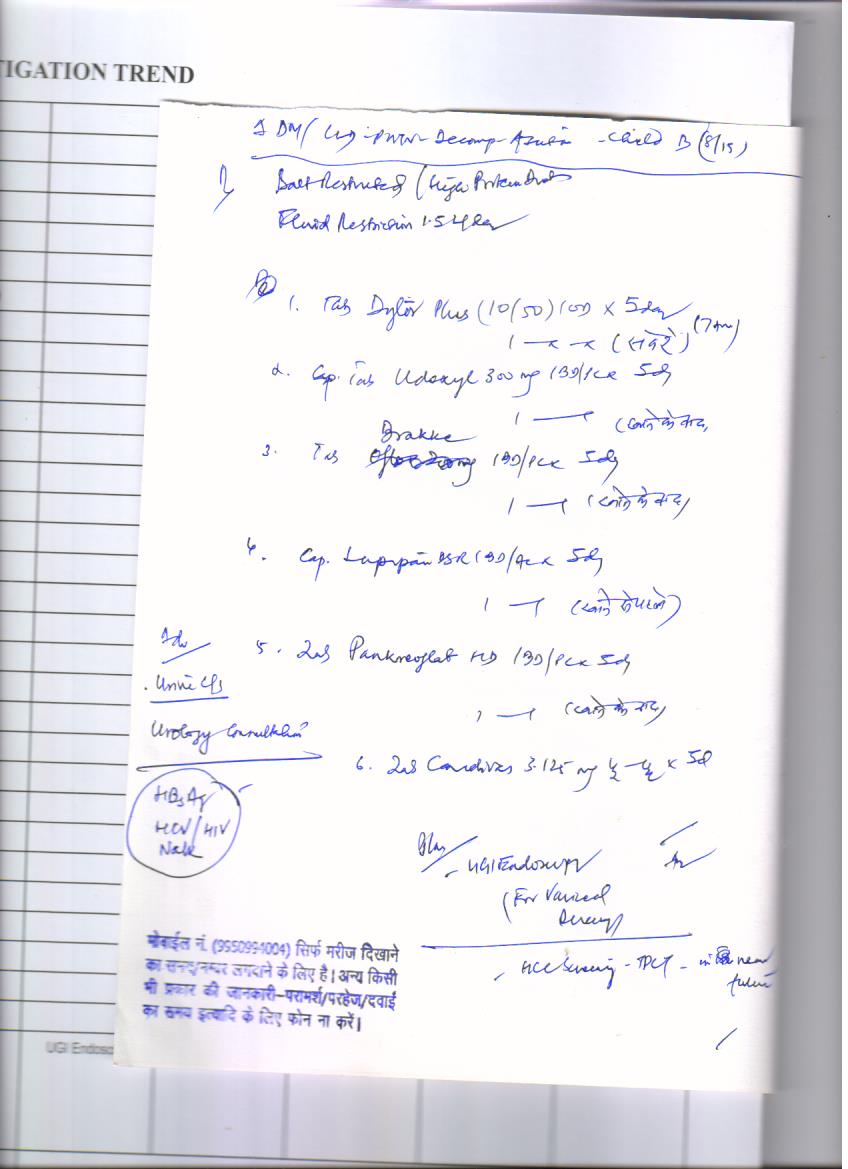 TIGATION TREND
DM/ - Decomp - - Child B (8/15)
Salt Restricted / High Protein Diet
Fluid Restriction 1.5 L/day
1. Tab Dytor Plus (10/50) 1OD x 5day
1 - x - x (सवेरे) (7am)
2. Cap. Tab Udoxyl 300 mg 1BD/PC x 5d
1 — 1 (खाने के बाद)
3. Tab 1BD/PC x 5d
1 — 1 (खाने के बाद)
4. Cap. DSR 1BD/AC x 5d
1 — 1 (खाने से पहले)
Adv
5. Tab Pankreoflat HD 1BD/PC x 5d
Urine C/s
1 — 1 (खाने के बाद)
Urology Consultation
6. Tab 3.125 mg ½ - ½ x 5d
HBsAg
HCV/HIV
Plan
UGI Endoscopy
(For Variceal
HCC Screening - TPCT - in near
future
मोबाईल नं. (9950994004) सिर्फ मरीज दिखाने
का समय/नम्बर लगवाने के लिए है। अन्य किसी
भी प्रकार की जानकारी–परामर्श/परहेज/दवाई
का समय इत्यादि के लिए फोन ना करें।
UGI Endosc